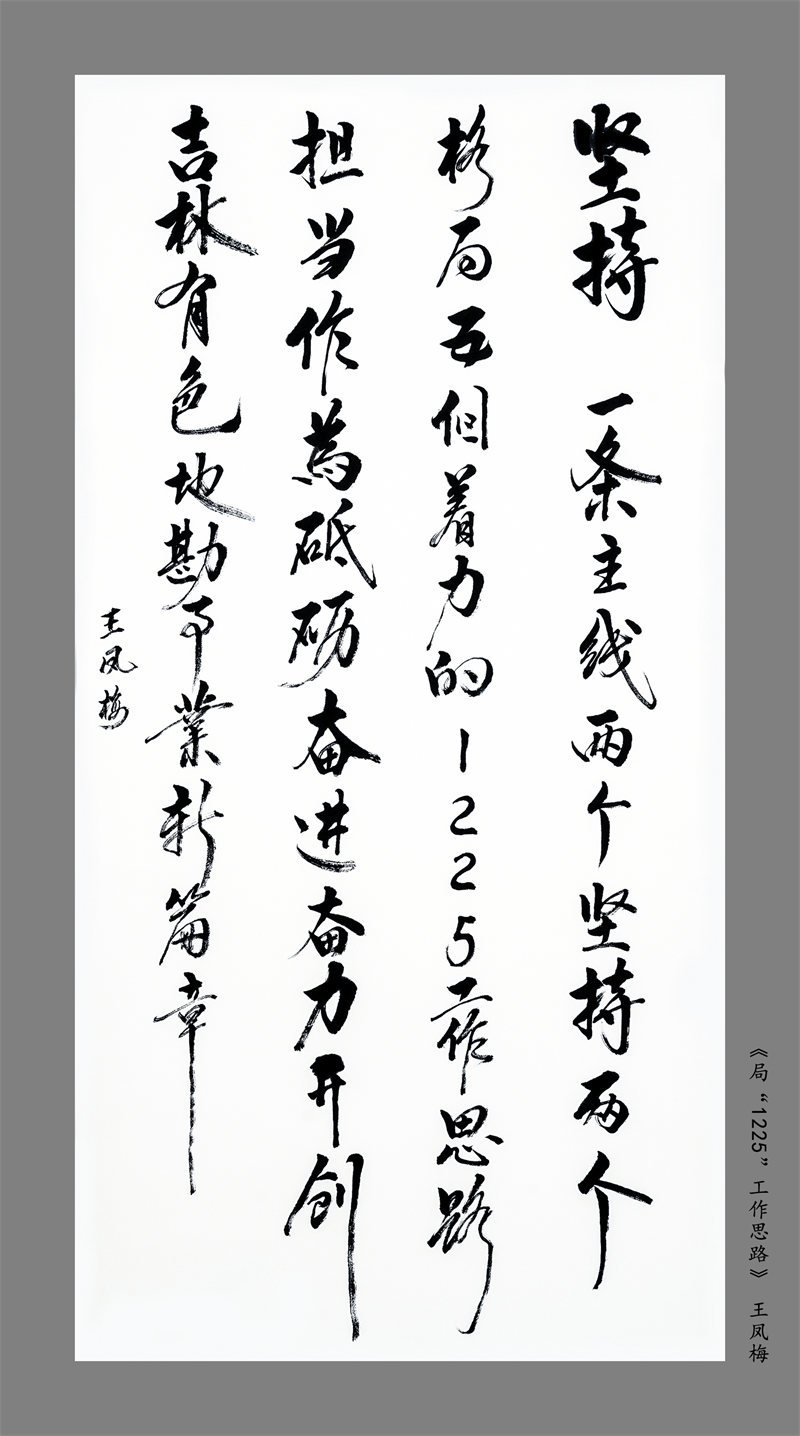 坚持 一条主线两个坚持两个
格局五個着力的1225工作思路
担当作為砥砺奋进奋力开创
吉林有色地勘事業新篇章
王凤梅
《局“1225”工作思路》 王凤梅